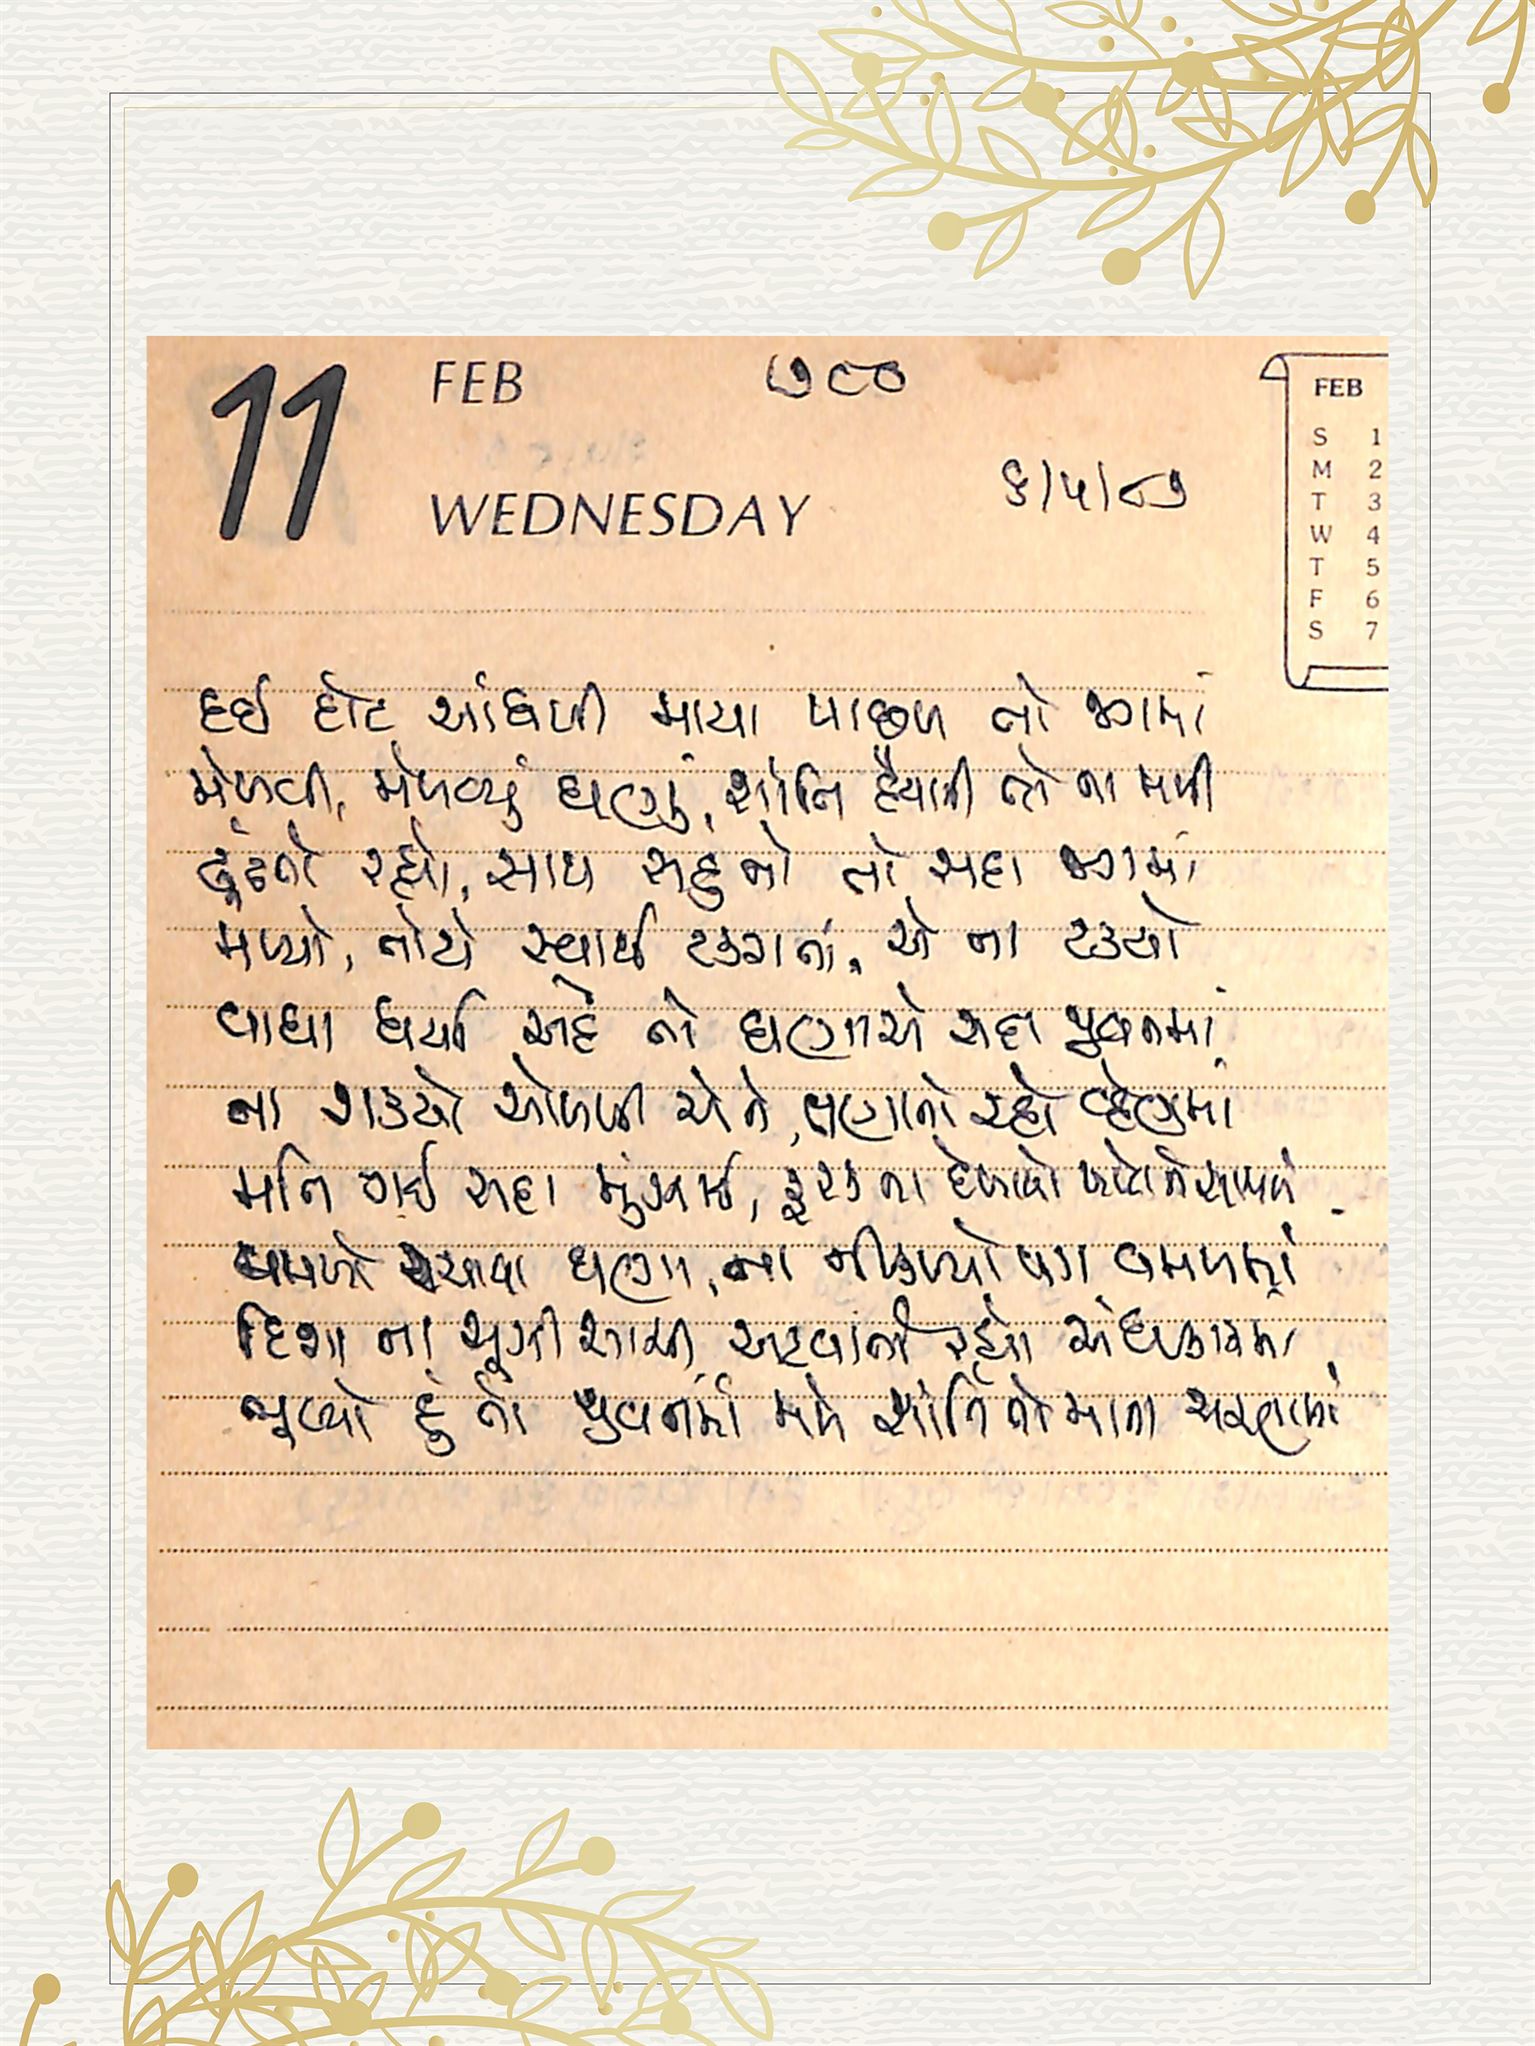 11 FEB ૭૮૦
WEDNESDAY ૬/૫/૮૭
FEB
S 1
M 2
T 3
W 4
T 5
F 6
S 7
દઈ દોટ આંધળી માયા પાછળ તો જગમાં
મેળવી, મેળવ્યું ઘણું, શાંતિ હૈયાની તો ના મળી
ઢૂંઢતો રહ્યો, સાથ સહુનો તો સદા જગમાં
મળ્યો, તોયે સ્વાર્થ ટકરાતાં, એ ના ટક્યો
વાઘા ધર્યા અહં તો ઘણાએ સદા જીવનમાં
ના શક્યો ઓળખી એને, તણાતો રહ્યો વ્હેણમાં
મતિ ગઈ સદા મુંઝાઈ, ફરક ના દેખાયો ખોટા ને સાચામાં
વમળો રચાયા ઘણા, ના નીકળ્યો પગ વમળમાં
દિશા ના સૂઝી સાચી, અટવાતો રહ્યો અંધકારમાં
ભૂલ્યો હું તો જીવનમાં મળે શાંતિ તો માતા ચરણમાં